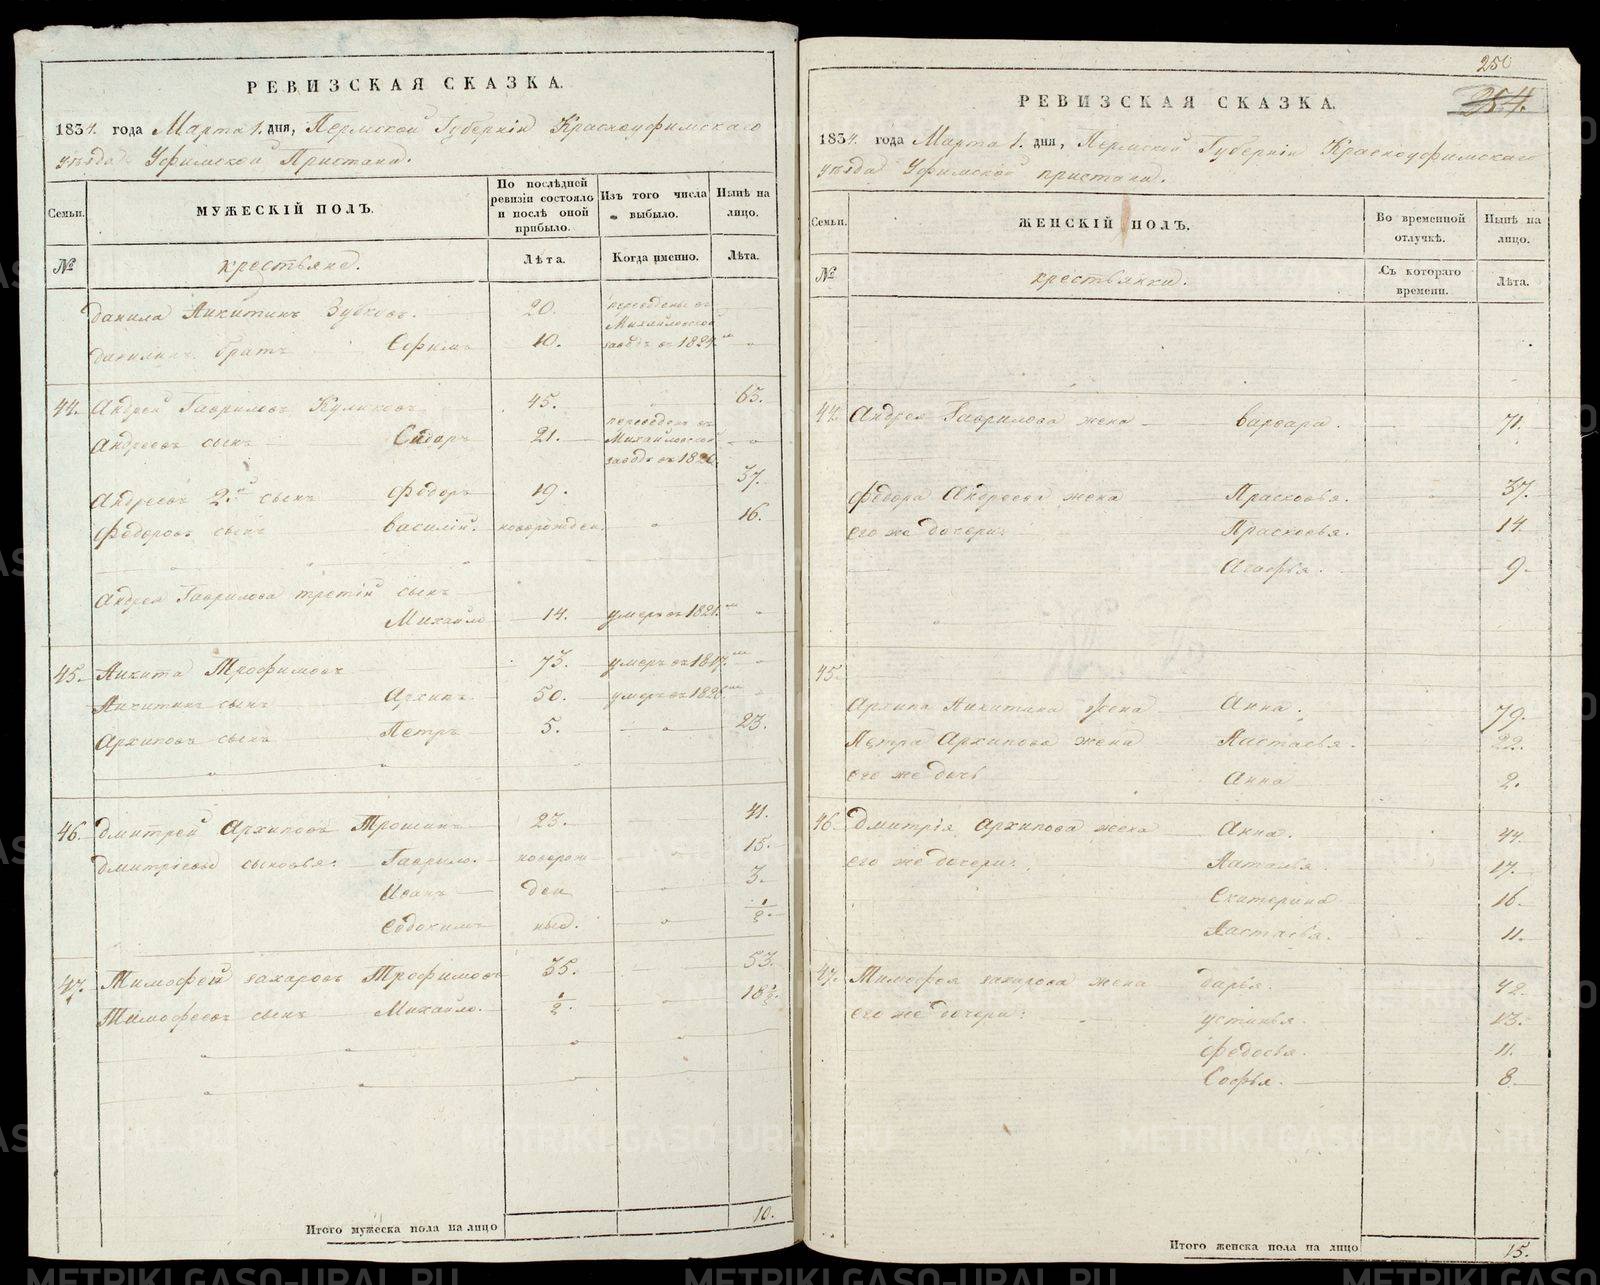 РЕВИЗСКАЯ СКАЗКА.
1834. года Марта 1. дня, Пермской Губернiи Красноуфимскаго
уѣзда Уфимской Пристани.
Семьи.
МУЖЕСКIЙ ПОЛЪ.
По послѣдней ревизiи состояло и послѣ оной прибыло.
Изъ того числа выбыло.
Нынѣ на лицо.
№
крестьяне.
Лѣта.
Когда именно.
Лѣта.
Данила Никитинъ Зубковъ. 20. переведены въ
Михайловской
Данилинъ братъ Ефимъ 10. заводъ въ 1824.
44. Андрей Гавриловъ Куликовъ 45. 63.
Андреевъ сынъ Сидоръ 21. переведенъ въ Михайловской заводъ въ 182
Андреевъ 2й сынъ Федоръ 19. 37.
Федоровъ сынъ Василiй. новорожден. 16.
Андрея Гаврилова третiй сынъ
Михайло 14. умеръ въ 1821.
45. Никита Трофимовъ 73. умеръ въ 1817.
Никитинъ сынъ Архипъ 50. умеръ въ 1826
Архиповъ сынъ Петръ 5. 23.
46. Дмитрей Архиповъ Трошинъ 23. 41.
Дмитрiевы сыновья: Гаврило. новорож 15.
Иванъ ден 3.
Евдокимъ ные. 1/2.
47. Тимофей Захаровъ Трофимовъ 35. 53.
Тимофеевъ сынъ Михайло. 1/2. 18 1/2.
Итого мужеска пола на лицо 10.
250
254.
РЕВИЗСКАЯ СКАЗКА.
1834. года Марта 1. дня, Пермской Губернiи Красноуфимскаго
уѣзда Уфимской пристани.
Семьи.
ЖЕНСКIЙ ПОЛЪ.
Во временной отлучкѣ.
Нынѣ на лицо.
№
крестьянки.
Съ котораго времени.
Лѣта.
44. Андрея Гаврилова жена Варвара. 71.
Федора Андреева жена Прасковья. 37.
его же дочери: Прасковья. 14.
Агафья. 9.
45.
Архипа Никитина жена Анна. 79.
Петра Архипова жена Настасья. 22.
его же дочь Анна 2.
46. Дмитрiя Архипова жена Анна. 44.
его же дочери: Наталья. 17.
Екатерина 16.
Настасья. 11.
47. Тимофея Захарова жена Дарья. 42.
его же дочери: Устинья. 13.
Федосья. 11.
Софья. 8.
Итого женска пола на лицо 15.
METRIKI.GASO-URAL.RU